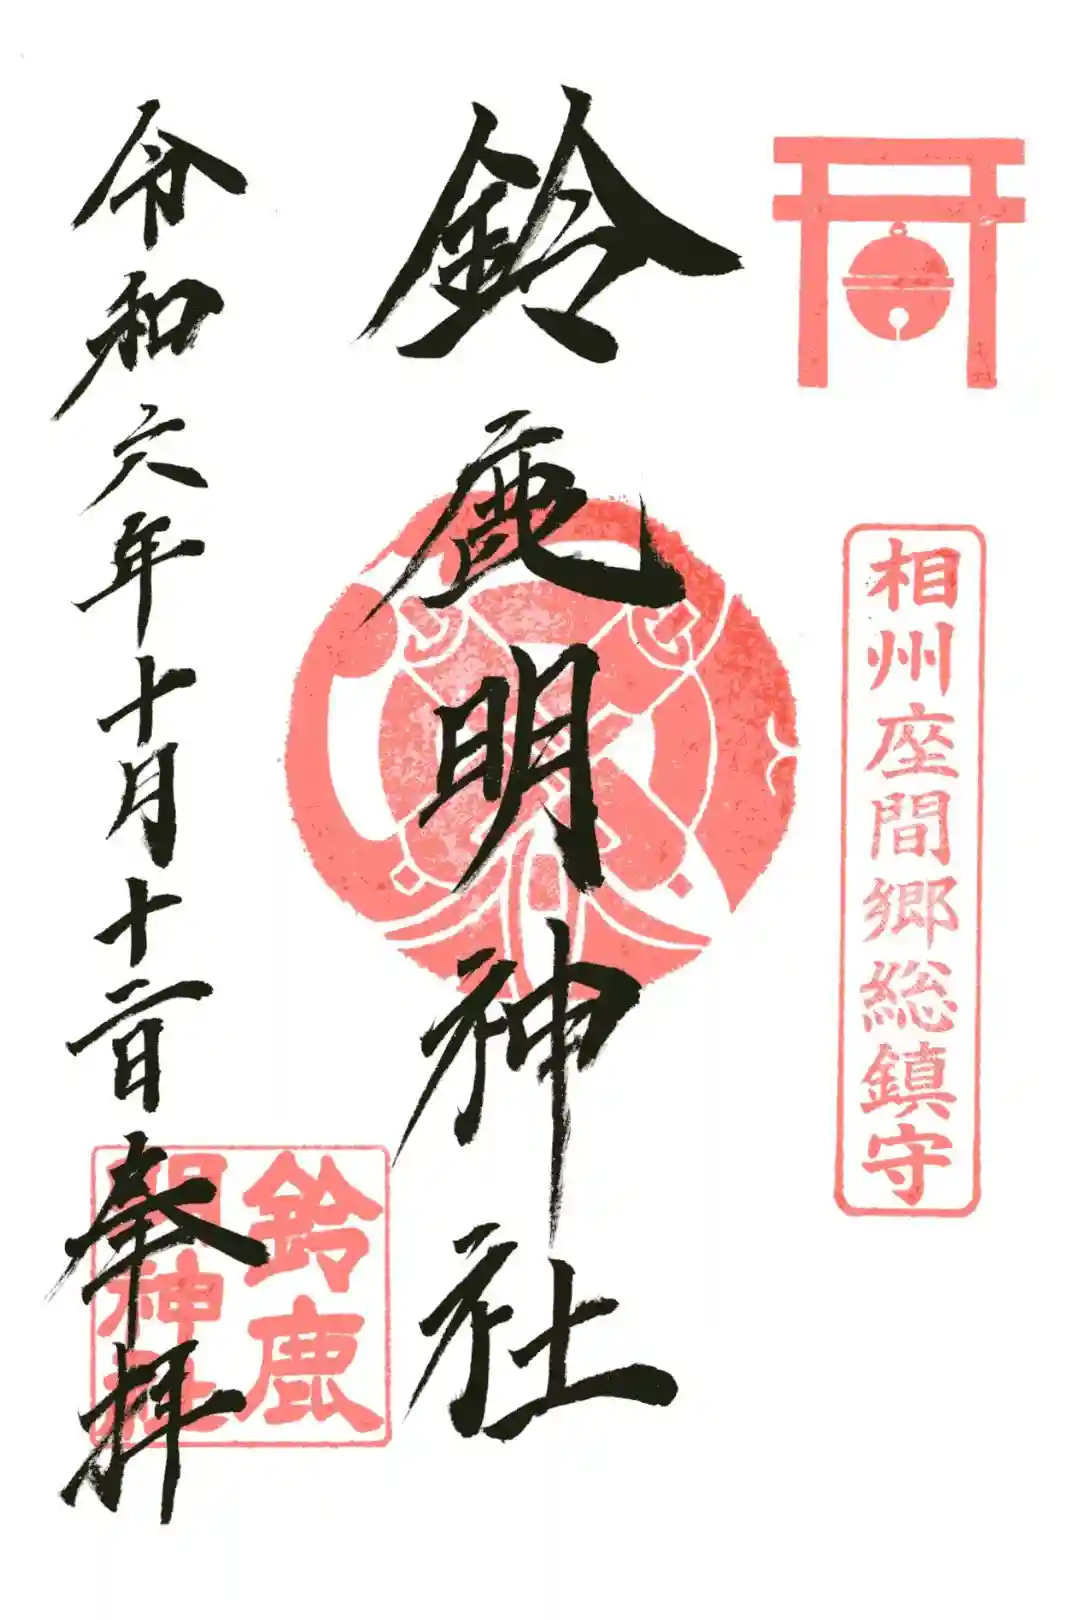 相州座間郷総鎮守
鈴鹿明神社
令和六年十月十二日奉拝
鈴鹿
明神社